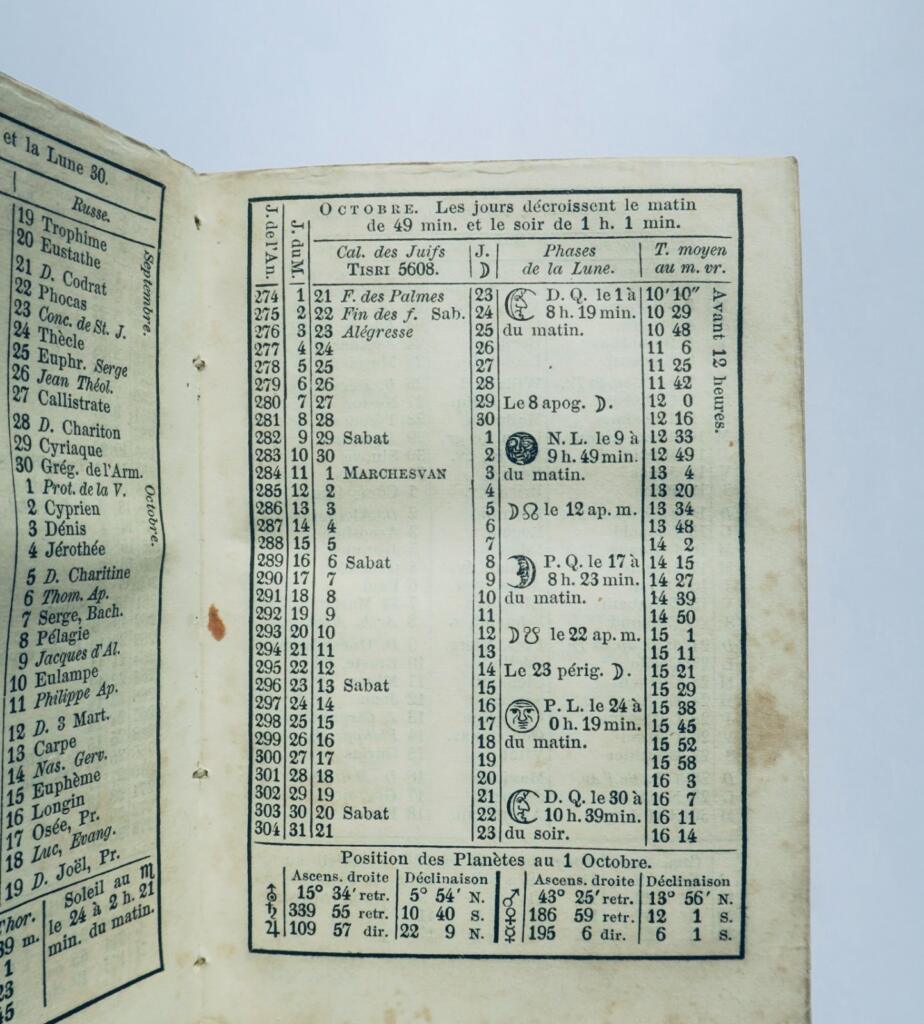 et la Lune 30.
Russe.
Septembre.
19 Trophime
20 Eustathe
21 D. Codrat
22 Phocas
23 Conc. de St. J.
24 Thècle
25 Euphr. Serge
26 Jean Théol.
27 Callistrate
28 D. Chariton
29 Cyriaque
30 Grég. de l'Arm.
Octobre.
1 Prot. de la V.
2 Cyprien
3 Dénis
4 Jérothée
5 D. Charitine
6 Thom. Ap.
7 Serge, Bach.
8 Pélagie
9 Jacques d'Al.
10 Eulampe
11 Philippe Ap.
12 D. 3 Mart.
13 Carpe
14 Nas. Gerv.
15 Euphème
16 Longin
17 Osée, Pr.
18 Luc, Evang.
19 D. Joël, Pr.
Soleil au ♏
le 24 à 2 h. 21
min. du matin.
OCTOBRE. Les jours décroissent le matin
de 49 min. et le soir de 1 h. 1 min.
J. de l'An. J. du M. Cal. des Juifs J. Phases T. moyen
TISRI 5608. ☽ de la Lune. au m. vr.
Avant 12 heures.
274 1 21 F. des Palmes 23 D. Q. le 1 à 10' 10"
275 2 22 Fin des f. Sab. 24 8 h. 19 min. 10 29
276 3 23 Alégresse 25 du matin. 10 48
277 4 24 26 11 6
278 5 25 27 11 25
279 6 26 28 11 42
280 7 27 29 Le 8 apog. ☽. 12 0
281 8 28 30 12 16
282 9 29 Sabat 1 N. L. le 9 à 12 33
283 10 30 2 9 h. 49 min. 12 49
284 11 1 MARCHESVAN 3 du matin. 13 4
285 12 2 4 13 20
286 13 3 5 ☽☊ le 12 ap. m. 13 34
287 14 4 6 13 48
288 15 5 7 14 2
289 16 6 Sabat 8 P. Q. le 17 à 14 15
290 17 7 9 8 h. 23 min. 14 27
291 18 8 10 du matin. 14 39
292 19 9 11 14 50
293 20 10 12 ☽☋ le 22 ap. m. 15 1
294 21 11 13 15 11
295 22 12 14 Le 23 périg. ☽. 15 21
296 23 13 Sabat 15 15 29
297 24 14 16 P. L. le 24 à 15 38
298 25 15 17 0 h. 19 min. 15 45
299 26 16 18 du matin. 15 52
300 27 17 19 15 58
301 28 18 20 16 3
302 29 19 21 D. Q. le 30 à 16 7
303 30 20 Sabat 22 10 h. 39 min. 16 11
304 31 21 23 du soir. 16 14
Position des Planètes au 1 Octobre.
Ascens. droite Déclinaison Ascens. droite Déclinaison
⛢ 15° 34' retr. 5° 54' N. ♂ 43° 25' retr. 13° 56' N.
♄ 339 55 retr. 10 40 S. ♀ 186 59 retr. 12 1 S.
♃ 109 57 dir. 22 9 N. ☿ 195 6 dir. 6 1 S.